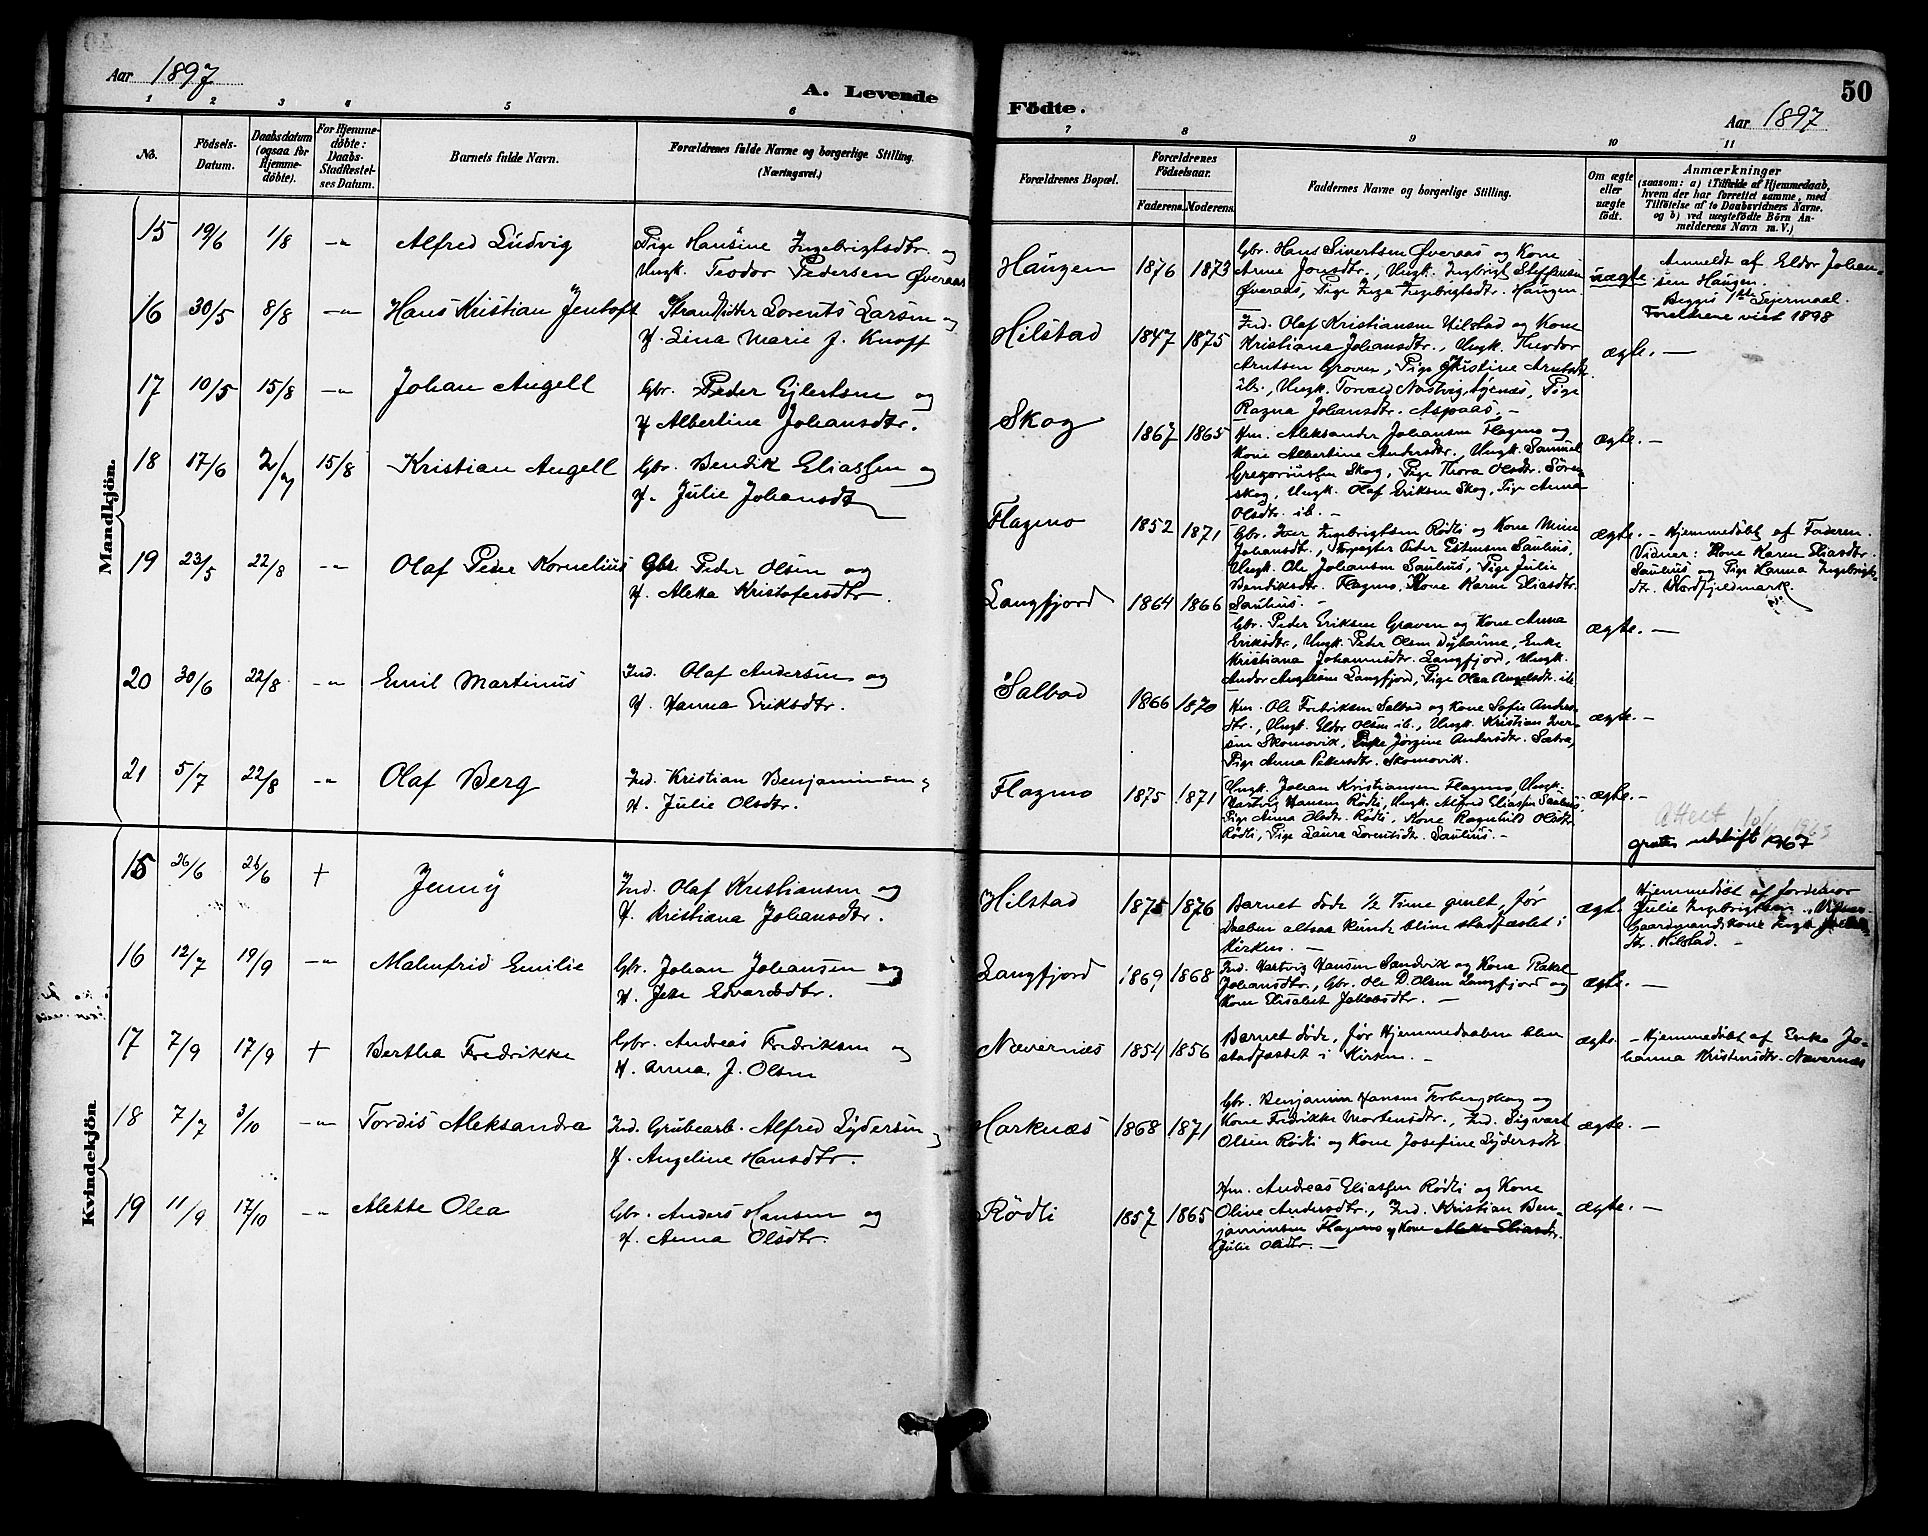 Aar 1897
A. Levende
1 2 3 4 5 6
No.
Födsels-Datum.
Daabsdatum (ogsaa for Hjemmedöbte).
For Hjemmedöbte: Daabs-Stadfæstelses Datum.
Barnets fulde Navn.
Forældrenes fulde Navne og borgerlige Stilling.
(Næringsvei.)
Mandkjön.
15 19/6 1/8 -"- Alfred Ludvig Pige Hansine Ingebrigtsdtr. og
Ungk. Teodor Pedersen Øveraas
16 30/5 8/8 -"- Hans Kristian Jentoft Strandsitter Lorents Larsen og
H. Lina Marie J. Knoff
17 10/5 15/8 -"- Johan Angell Gbr. Peder Ejlertsen og
H. Albertine Johansdtr.
18 17/6 2/7 15/8 Kristian Angell Gbr. Bendik Eliassen og
H. Julie Johansdtr
19 23/5 22/8 -"- Olaf Peder Kornelius Gbr. Peder Olsen og
H. Aletta Kristofersdtr.
20 30/6 22/8 -"- Emil Martinus Ind. Olaf Andersen og
H. Hanna Eriksdtr.
21 5/7 22/8 -"- Olaf Berg Ind. Kristian Benjaminsen og
H. Julie Olsdtr.
Kvindekjön
15 26/6 26/6 + Jenny Ind. Olaf Kristiansen og
H. Kristiana Johansdtr.
16 12/7 19/9 -"- Malenfrid Emilie Gbr. Johan Johansen og
H. Jette Edvardsdtr.
17 7/9 17/9 + Bertha Fredrikke Gbr. Andreas Fredriksen og
H. Anna J. Olsen
18 7/7 3/10 -"- Tordis Aleksandra Ind. Grubearb. Alfred Lydersen og
H. Angeline Hansdtr.
19 11/9 17/10 -"- Alette Olea Gbr. Anders Hansen og
H. Anna Olsdtr.
50
Födte.
Aar 1897
7 8 9 10 11
Forældrenes Bopæl.
Forældrenes Födselsaar.
Faderens. Moderens.
Faddernes Navne og borgerlige Stilling.
Om ægte eller uægte födt.
Anmærkninger
(saasom: a) i Tilfælde af Hjemmedaab,
hvem der har forrettet samme, med
Tilföielse af to Daabsvidners Navne.
og b) ved uægtefödte Börn Anmelderens
Navn m. V.)
Haugen 1876 1873
Gbr. Hans Sivertsen Øveraas og Kone
Arne Jonsdtr., Ungk. Ingbrigt Steffensen
Øveraas, Pige Inga Ingebrigtsdtr. Haugen
uægte
Anmeldt af Eldor Johansen Haugen.
Begges 1ste Leiermaal.
Foreldrene viet 1898
Hilstad 1847 1875
Ind. Olaf Kristiansen Hilstad og Kone
Kristiana Johansdtr., Ungk. Theodor
Arntsen Graven, Pige Kristine Arntsdtr.
ib., Ungk. Torvald Pige
Ragna Johansdtr. Aspaas. -
ægte. -
Skog 1867 1865
Hm. Aleksander Johansen Flagmo og
Kone Albertine Andersdtr., Ungk. Samuel
Gregoriussen Skog, Pige Thora Olsdtr. Sören
skog, Ungk. Olaf Eriksen Skog, Pige Anna
Olsdtr. ib. -
ægte. -
Flagmo 1852 1871
Gbr. Iver Ingebrigtsen Rödli og Kone
Johansdtr., Forpagter Peder Estensen Saulius,
Ungk. Ole Johansen Saulius, Pige Julie
Bendiksdtr. Flagmo, Kone Karen Eliasdtr.
Saulius. -
ægte.
- Hjemmedöbt af Faderen.
Vidner: Kone Karen Eliasdtr.
Saulius og Pige Hanna Ingebrigtsdtr.
Nordfjeldmark.
Langfjord 1864 1866
Gbr. Peder Eriksen Graven og Kone Anna
Eriksdtr., Ungk. Peder Olsen Enke
Kristiana Johannesdtr. Langfjord, Ungk.
Andor Angelsen Langfjord, Pige Olea Angelsdtr. ib.
ægte. -
Salbod 1866 1870
Hm. Ole Fredriksen Salbod og Kone Sofie Andersdtr.,
Ungk. Eldor Olsen ib., Ungk. Kristian Iversen
Skomovik, Enke Jörgine Andersdtr. Sætra,
Pige Anna Pedersdtr. Skomovik.
ægte. -
Flagmo 1875 1871
Ungk. Johan Kristiansen Flagmo, Ungk.
Hartvig Hansen Rödli, Ungk. Alfred Eliassen Saulius,
Pige Anna Olsdtr. Rödli, Kone Ragnhild Olsdtr.
Rödli, Pige Laura Lorentsdtr. Saulius. -
ægte. -
Attest
gratis utskrift 1967
Hilstad 1875 1876
Barnet döde 1/2 Time gmlt, för
Daaben altsaa kunde blive stadfæstet i
Kirken. -
ægte
Hjemmedöbt af Jordemor
Julie Ingebrigtsen, Vidner
Gaardmandskone
dtr. Hilstad. -
Langfjord 1869 1868
Ind. Hartvig Hansen Sandvik og Kone Rakel
Johansdtr., Gbr. Ole D. Olsen Langfjord og
Kone Elisabet Jakobsdtr. -
ægte. -
Nævernæs 1854 1856
Barnet döde, för Hjemmedaaben blev
stadfæstet i Kirken. -
ægte
- Hjemmedöbt af Enke Johanna
Kristensdtr. Nævernæs
Harknæs 1868 1871
Gbr. Benjamin Hansen Torbergskog og
Kone Fredrikke Mortensdtr., Ind. Sigvart
Olsen Rödli og Kone Josefine Lydersdtr
ægte. -
Rödli 1857 1865
Hm. Andreas Eliassen Rödli og Kone
Oline Andersdtr., Ind. Kristian Benjaminsen
Flagmo og Kone Alette Eliasdtr.
Julie Olsdtr. -
ægte. -